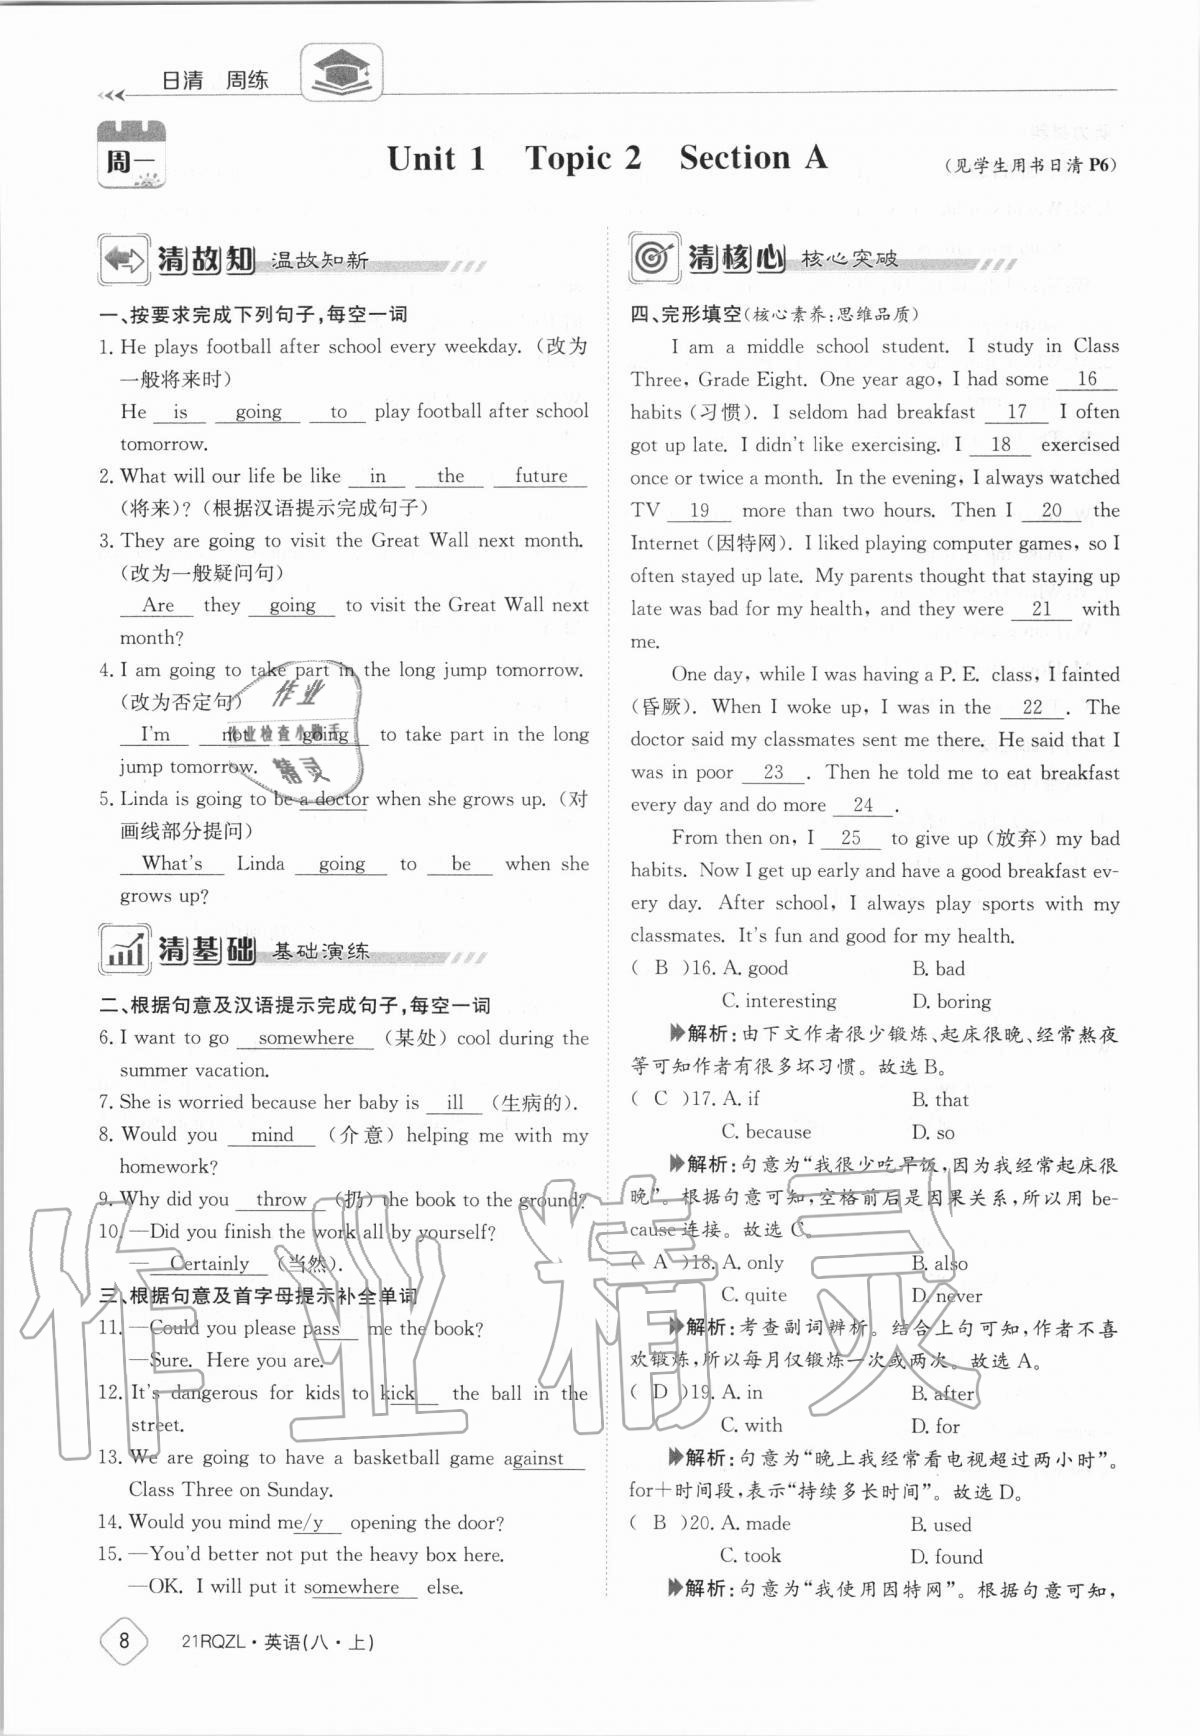 日清 周练
周一
Unit 1 Topic 2 Section A
(见学生用书日清P6)
清故知 温故知新
一、按要求完成下列句子,每空一词
1. He plays football after school every weekday. (改为
一般将来时)
He is going to play football after school
tomorrow.
2. What will our life be like in the future
(将来)? (根据汉语提示完成句子)
3. They are going to visit the Great Wall next month.
(改为一般疑问句)
Are they going to visit the Great Wall next
month?
4. I am going to take part in the long jump tomorrow.
(改为否定句)
I'm not going to take part in the long
jump tomorrow.
5. Linda is going to be a doctor when she grows up. (对
画线部分提问)
What's Linda going to be when she
grows up?
清基础 基础演练
二、根据句意及汉语提示完成句子,每空一词
6. I want to go somewhere (某处) cool during the
summer vacation.
7. She is worried because her baby is ill (生病的).
8. Would you mind (介意) helping me with my
homework?
9. Why did you throw (扔) the book to the ground?
10. —Did you finish the work all by yourself?
— Certainly (当然).
三、根据句意及首字母提示补全单词
11. —Could you please pass me the book?
—Sure. Here you are.
12. It's dangerous for kids to kick the ball in the
street.
13. We are going to have a basketball game against
Class Three on Sunday.
14. Would you mind me/y opening the door?
15. —You'd better not put the heavy box here.
—OK. I will put it somewhere else.
8 21RQZL·英语(八·上)
清核心 核心突破
四、完形填空(核心素养:思维品质)
I am a middle school student. I study in Class
Three, Grade Eight. One year ago, I had some 16
habits (习惯). I seldom had breakfast 17 I often
got up late. I didn't like exercising. I 18 exercised
once or twice a month. In the evening, I always watched
TV 19 more than two hours. Then I 20 the
Internet (因特网). I liked playing computer games, so I
often stayed up late. My parents thought that staying up
late was bad for my health, and they were 21 with
me.
One day, while I was having a P. E. class, I fainted
(昏厥). When I woke up, I was in the 22 . The
doctor said my classmates sent me there. He said that I
was in poor 23 . Then he told me to eat breakfast
every day and do more 24 .
From then on, I 25 to give up (放弃) my bad
habits. Now I get up early and have a good breakfast ev-
ery day. After school, I always play sports with my
classmates. It's fun and good for my health.
( B )16. A. good B. bad
C. interesting D. boring
解析:由下文作者很少锻炼、起床很晚、经常熬夜
等可知作者有很多坏习惯。故选B。
( C )17. A. if B. that
C. because D. so
解析:句意为“我很少吃早饭,因为我经常起床很
晚”。根据句意可知,空格前后是因果关系,所以用 be-
cause连接。故选C。
( A )18. A. only B. also
C. quite D. never
解析:考查副词辨析。结合上句可知,作者不喜
欢锻炼,所以每月仅锻炼一次或两次。故选A。
( D )19. A. in B. after
C. with D. for
解析:句意为“晚上我经常看电视超过两小时”。
for+时间段,表示“持续多长时间”。故选D。
( B )20. A. made B. used
C. took D. found
解析:句意为“我使用因特网”。根据句意可知,
作业
作业检查小助手
精灵
作业精灵